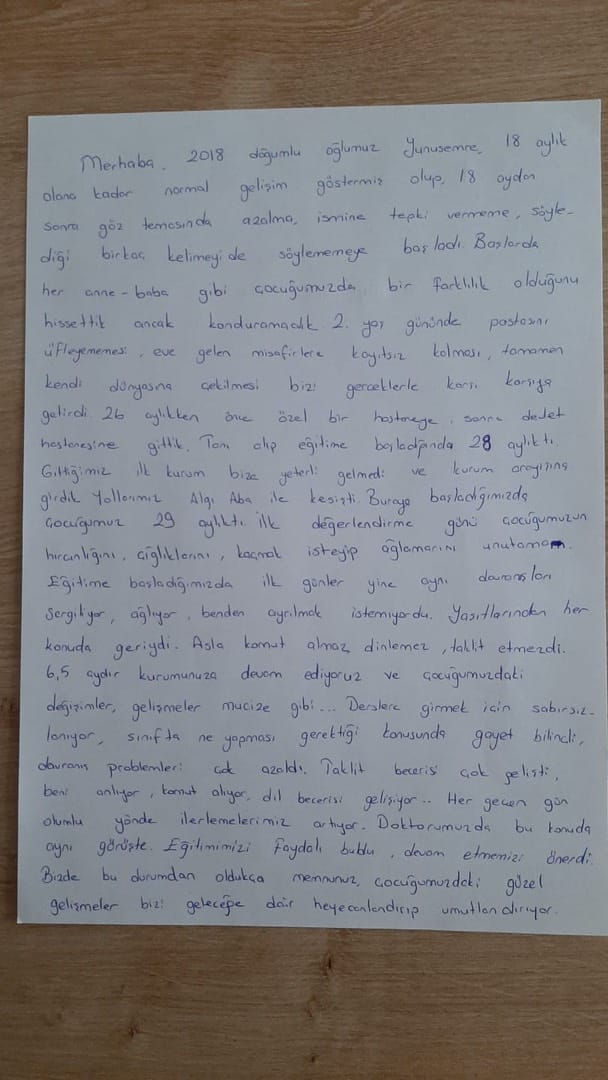 Merhaba, 2018 doğumlu oğlumuz Yunusemre, 18 aylık
olana kadar normal gelişim göstermiş olup, 18 aydan
sonra göz temasında azalma, ismine tepki vermeme, söyle-
diği birkaç kelimeyi de söylememeye başladı. Başlarda
her anne-baba gibi çocuğumuzda bir farklılık olduğunu
hissettik ancak konduramadık 2. yaş gününde pastasını
üfleyememesi, eve gelen misafirlere kayıtsız kalması, tamamen
kendi dünyasına çekilmesi bizi gerçeklerle karşı karşıya
getirdi. 26 aylıkken önce özel bir hastaneye, sonra devlet
hastanesine gittik. Tanı alıp eğitime başladığında 28 aylıktı.
Gittiğimiz ilk kurum bize yeterli gelmedi ve kurum arayışına
girdik Yollarımız Algı Aba ile kesişti. Buraya başladığımızda
çocuğumuz 29 aylıktı. İlk değerlendirme günü çocuğumuzun
hırçınlığını, çığlıklarını, kaçmak isteyip ağlamarını unutamam.
Eğitime başladığımızda ilk günler yine aynı davranışları
sergiliyor, ağlıyor, benden ayrılmak istemiyordu. Yaşıtlarından her
konuda geriydi. Asla komut almaz, dinlemez, taklit etmezdi.
6,5 aydır kurumunuza devam ediyoruz ve çocuğumuzdaki
değişimler, gelişmeler mucize gibi... Derslere girmek için sabırsız-
lanıyor, sınıfta ne yapması gerektiği konusunda gayet bilinçli,
davranış problemleri çok azaldı. Taklit becerisi çok gelişti,
beni anlıyor, komut alıyor, dil becerisi gelişiyor.. Her geçen gün
olumlu yönde ilerlemelerimiz artıyor. Doktorumuzda bu konuda
aynı görüşte. Eğitimimizi faydalı buldu, devam etmemizi önerdi.
Bizde bu durumdan oldukça memnunuz, çocuğumuzdaki güzel
gelişmeler bizi geleceğe dair heyecanlandırıp umutlandırıyor.